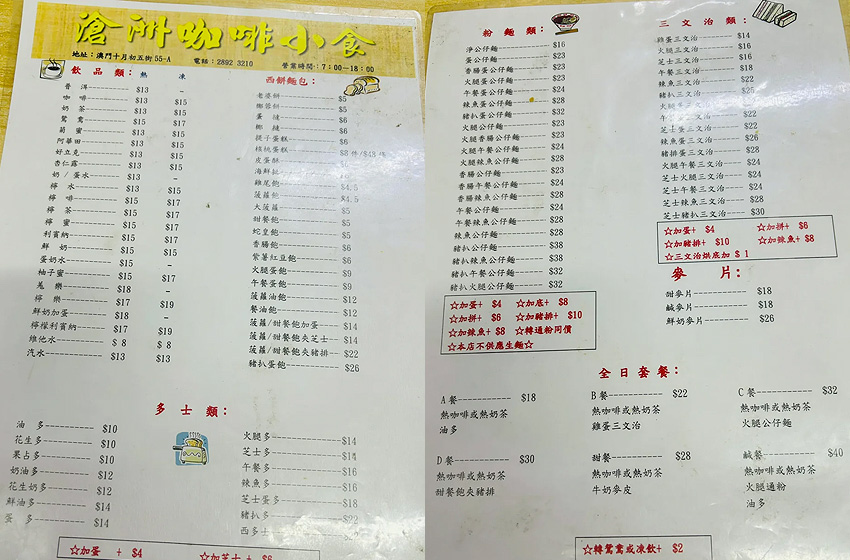 滄洲咖啡小食
地址：澳門十月初五街55-A 電話：2892 3210 營業時間：7：00－18：00
飲品類： 熱 凍
普洱 $13 -
咖啡 $13 $15
奶茶 $13 $15
鴛鴦 $15 $17
菊蜜 $13 $15
阿華田 $13 $15
好立克 $13 $15
杏仁露 $13 $15
奶/蛋水 $13 -
檸水 $13 $15
檸啡 $15 $17
檸茶 $13 $15
檸蜜 $15 $17
利賓納 $15 $17
鮮奶 $15 -
蛋奶水 $15 -
柚子蜜 $15 $17
羗樂 $18 -
檸樂 $17 $19
鮮奶加蛋 $18 -
檸檬利賓納 $17 $19
維他水 $ 8 $ 8
汽水 $13 $13
西餅麵包：
老婆餅 $5
椰蓉餅 $5
蛋撻 $6
椰撻 $6
提子蛋糕 $6
核桃蛋糕 $8
皮蛋酥
海鮮
雞尾飽 $4.5
菠蘿飽 $4.5
大菠蘿 $5
甜餐飽 $5
蛇豆飽 $5
香腸飽 $6
紫薯紅豆飽 $6
火腿蛋飽 $9
午餐蛋飽 $9
菠蘿油飽 $12
餐油飽 $12
菠蘿/甜餐飽加蛋 $14
菠蘿/甜餐飽夾芝士 $14
菠蘿/甜餐飽夾豬排 $22
豬扒蛋飽 $26
多士類：
油多 $10
花生多 $10
果占多 $10
奶油多 $12
花生奶多 $12
鮮油多 $14
蛋多 $14
火腿多 $14
芝士多 $14
午餐多 $16
辣魚多 $16
芝士蛋多 $18
豬扒多
西多士
☆加蛋 + $4 ☆加芝士+ $6
粉麵類：
淨公仔麵 $16
蛋公仔麵 $23
香腸蛋公仔麵 $23
火腿蛋公仔麵 $23
午餐蛋公仔麵 $24
辣魚蛋公仔麵 $28
豬扒蛋公仔麵 $32
火腿公仔麵 $23
火腿香腸公仔麵 $23
火腿午餐公仔麵 $24
火腿辣魚公仔麵 $28
香腸公仔麵 $23
香腸午餐公仔麵 $24
香腸辣魚公仔麵 $28
午餐公仔麵 $24
午餐辣魚公仔麵 $28
辣魚公仔麵 $28
豬扒公仔麵 $32
豬扒香腸公仔麵 $38
豬扒午餐公仔麵 $32
豬扒火腿公仔麵 $32
☆加蛋+ $4 ☆加底+ $8
☆加拼+ $6 ☆加豬排+ $10
☆加辣魚+ $8 ☆轉通粉同價
☆本店不供應生麵☆
三文治類：
雞蛋三文治 $14
火腿三文治 $16
芝士三文治 $16
午餐三文治 $18
辣魚三文治 $22
豬扒三文治 $25
火腿
午
芝士蛋三文治 $22
辣魚蛋三文治 $26
豬排蛋三文治 $28
火腿午餐三文治 $24
芝士火腿三文治 $24
芝士午餐三文治 $24
芝士辣魚三文治 $28
芝士豬扒三文治 $30
☆加蛋+ $4 ☆加拼+ $6
☆加豬排+ $10 ☆加辣魚+ $8
☆三文治烘底加 $ 1
麥片：
甜麥片 $18
鹹麥片 $18
鮮奶麥片 $26
全日套餐：
A餐 $18
熱咖啡或熱奶茶
油多
B餐 $22
熱咖啡或熱奶茶
雞蛋三文治
C餐 $32
熱咖啡或熱奶茶
火腿公仔麵
D餐 $30
熱咖啡或熱奶茶
甜餐飽夾豬排
甜餐 $28
熱咖啡或熱奶茶
牛奶麥皮
鹹餐 $40
熱咖啡或熱奶茶
火腿通粉
油多
☆轉鴛鴦或凍飲+ $2